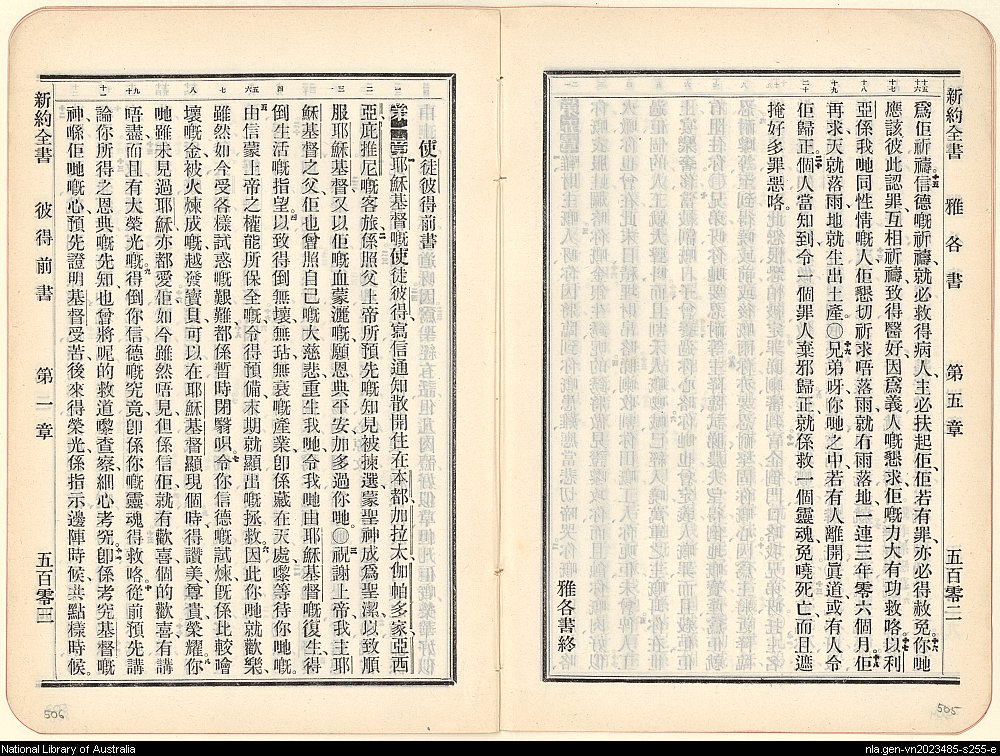 新約全書 雅各書 第五章 五百零二
爲佢祈禱信德嘅祈禱就必救得病人主必扶起佢佢若有罪亦必得赦免你哋
應該彼此認罪互相祈禱致得醫好因爲義人嘅懇求佢嘅力大有功效咯以利
亞係我哋同性情嘅人佢懇切祈求唔落雨就有雨落地一連三年零六個月佢
再求天就落雨地就生出土產〇兄弟呀你哋之中若有人離開眞道或有人令
佢歸正個人當知到令一個罪人棄邪歸正就係救一個靈魂免嘵死亡而且遮
掩好多罪惡咯
雅各書終
使徒彼得前書
第一章耶穌基督嘅使徒彼得寫信通知散開住在本都加拉太伽帕多家亞西
亞庇推尼嘅客旅係照父上帝所預先嘅知見被揀選蒙聖神成爲聖潔以致順
服耶穌基督又以佢嘅血蒙灑嘅願恩典平安加多過你哋〇祝謝上帝我主耶
穌基督之父佢也曾照自己嘅大慈悲重生我哋令我哋由耶穌基督嘅復生得
倒生活嘅指望以致得倒無壞無玷無衰嘅產業卽係藏在天處嚟等待你哋嘅
由信蒙上帝之權能所保全嘅令得預備末期就顯出嘅拯救因此你哋就歡樂
雖然如今受各樣試惑嘅艱難都係暫時閉翳呮令你信德嘅試煉旣係比較噲
壞嘅金被火煉成嘅越發寶貝可以在耶穌基督顯現個時得讚美尊貴榮耀你
哋雖未見過耶穌亦都愛佢如今雖然唔見但係信佢就有歡喜個的歡喜有講
唔盡而且有大榮光嘅得倒你信德嘅究竟卽係你嘅靈魂得救咯從前預先講
論你所得之恩典嘅先知也曾將呢的救道嚟查察細心考究卽係考究基督嘅
神喺佢哋嘅心預先證明基督受苦後來得榮光係指示邊陣時候共點樣時候
新約全書 彼得前書 第一章 五百零三
506
505
National Library of Australia
nla.gen-vn2023485-s255-e